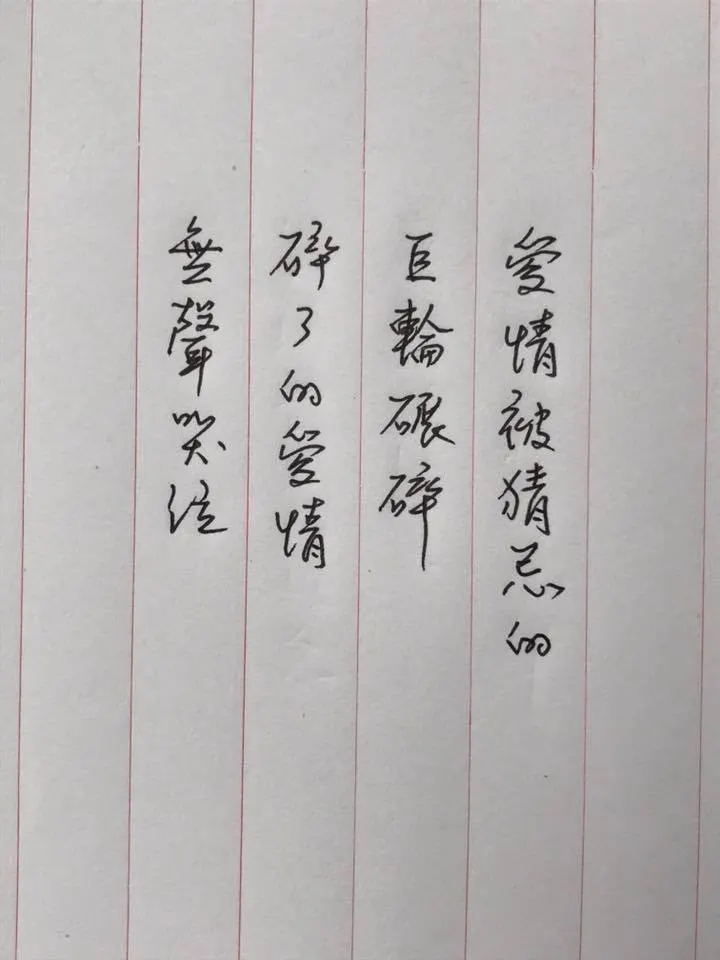 愛情被猜忌的
巨輪碾碎
碎了的愛情
無聲哭泣